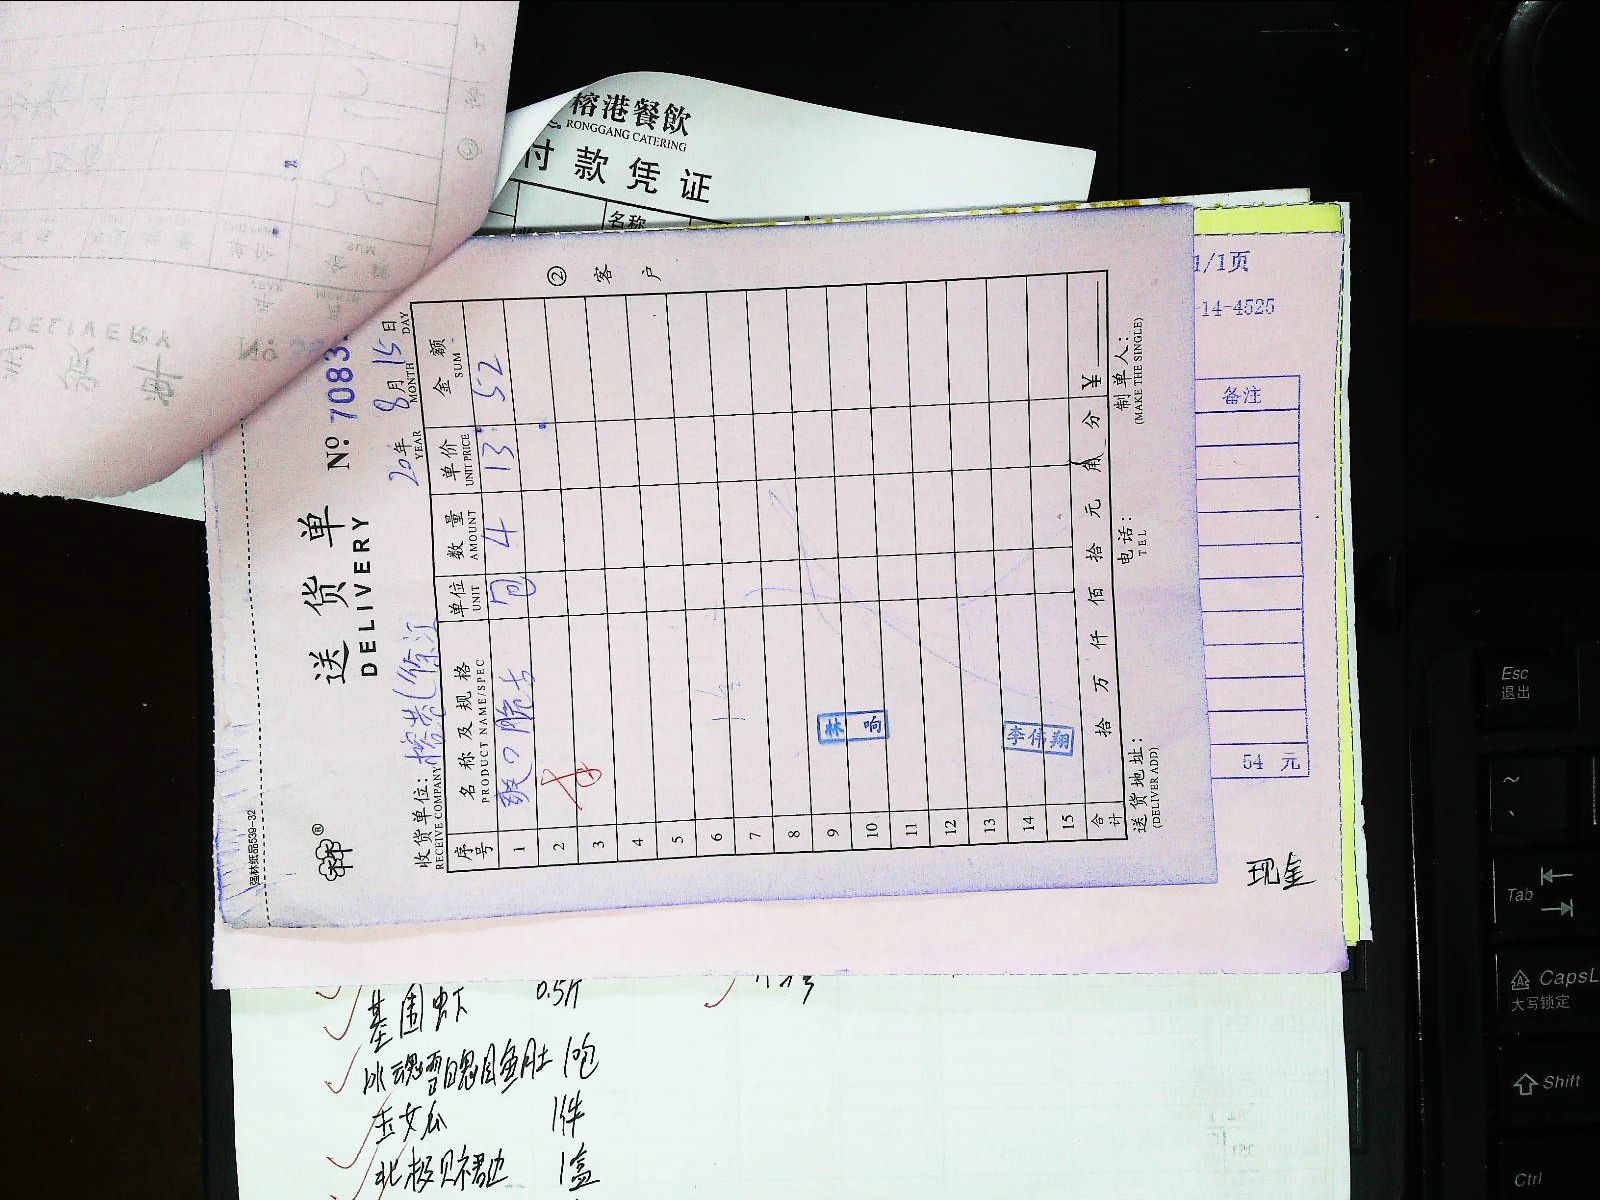 榕港餐飲
RONGGANG CATERING
付款凭证
名称
1/1页
-14-4525
备注
54 元
现金
强林纸品539-32
送货单
DELIVERY
№ 7083
20 年 8 月 15 日
YEAR MONTH DAY
收货单位：
RECEIVE COMPANY
② 客户
序号 名称及规格 单位 数量 单价 金额
PRODUCT NAME/SPEC UNIT AMOUNT UNIT PRICE SUM
1 包 4 13 52
2
3
4
5
6
7
8
9 林响
10
11
12
13
14 李伟翔
15
合计 拾 万 仟 佰 拾 元 角 分 ¥
送货地址： 电话： 制单人：
(DELIVER ADD) TEL (MAKE THE SINGLE)
基围虾 0.5斤
1包
玉女瓜 1件
北极贝裙边 1盒
Esc
退出
Tab
CapsL
大写锁定
Shift
Ctrl